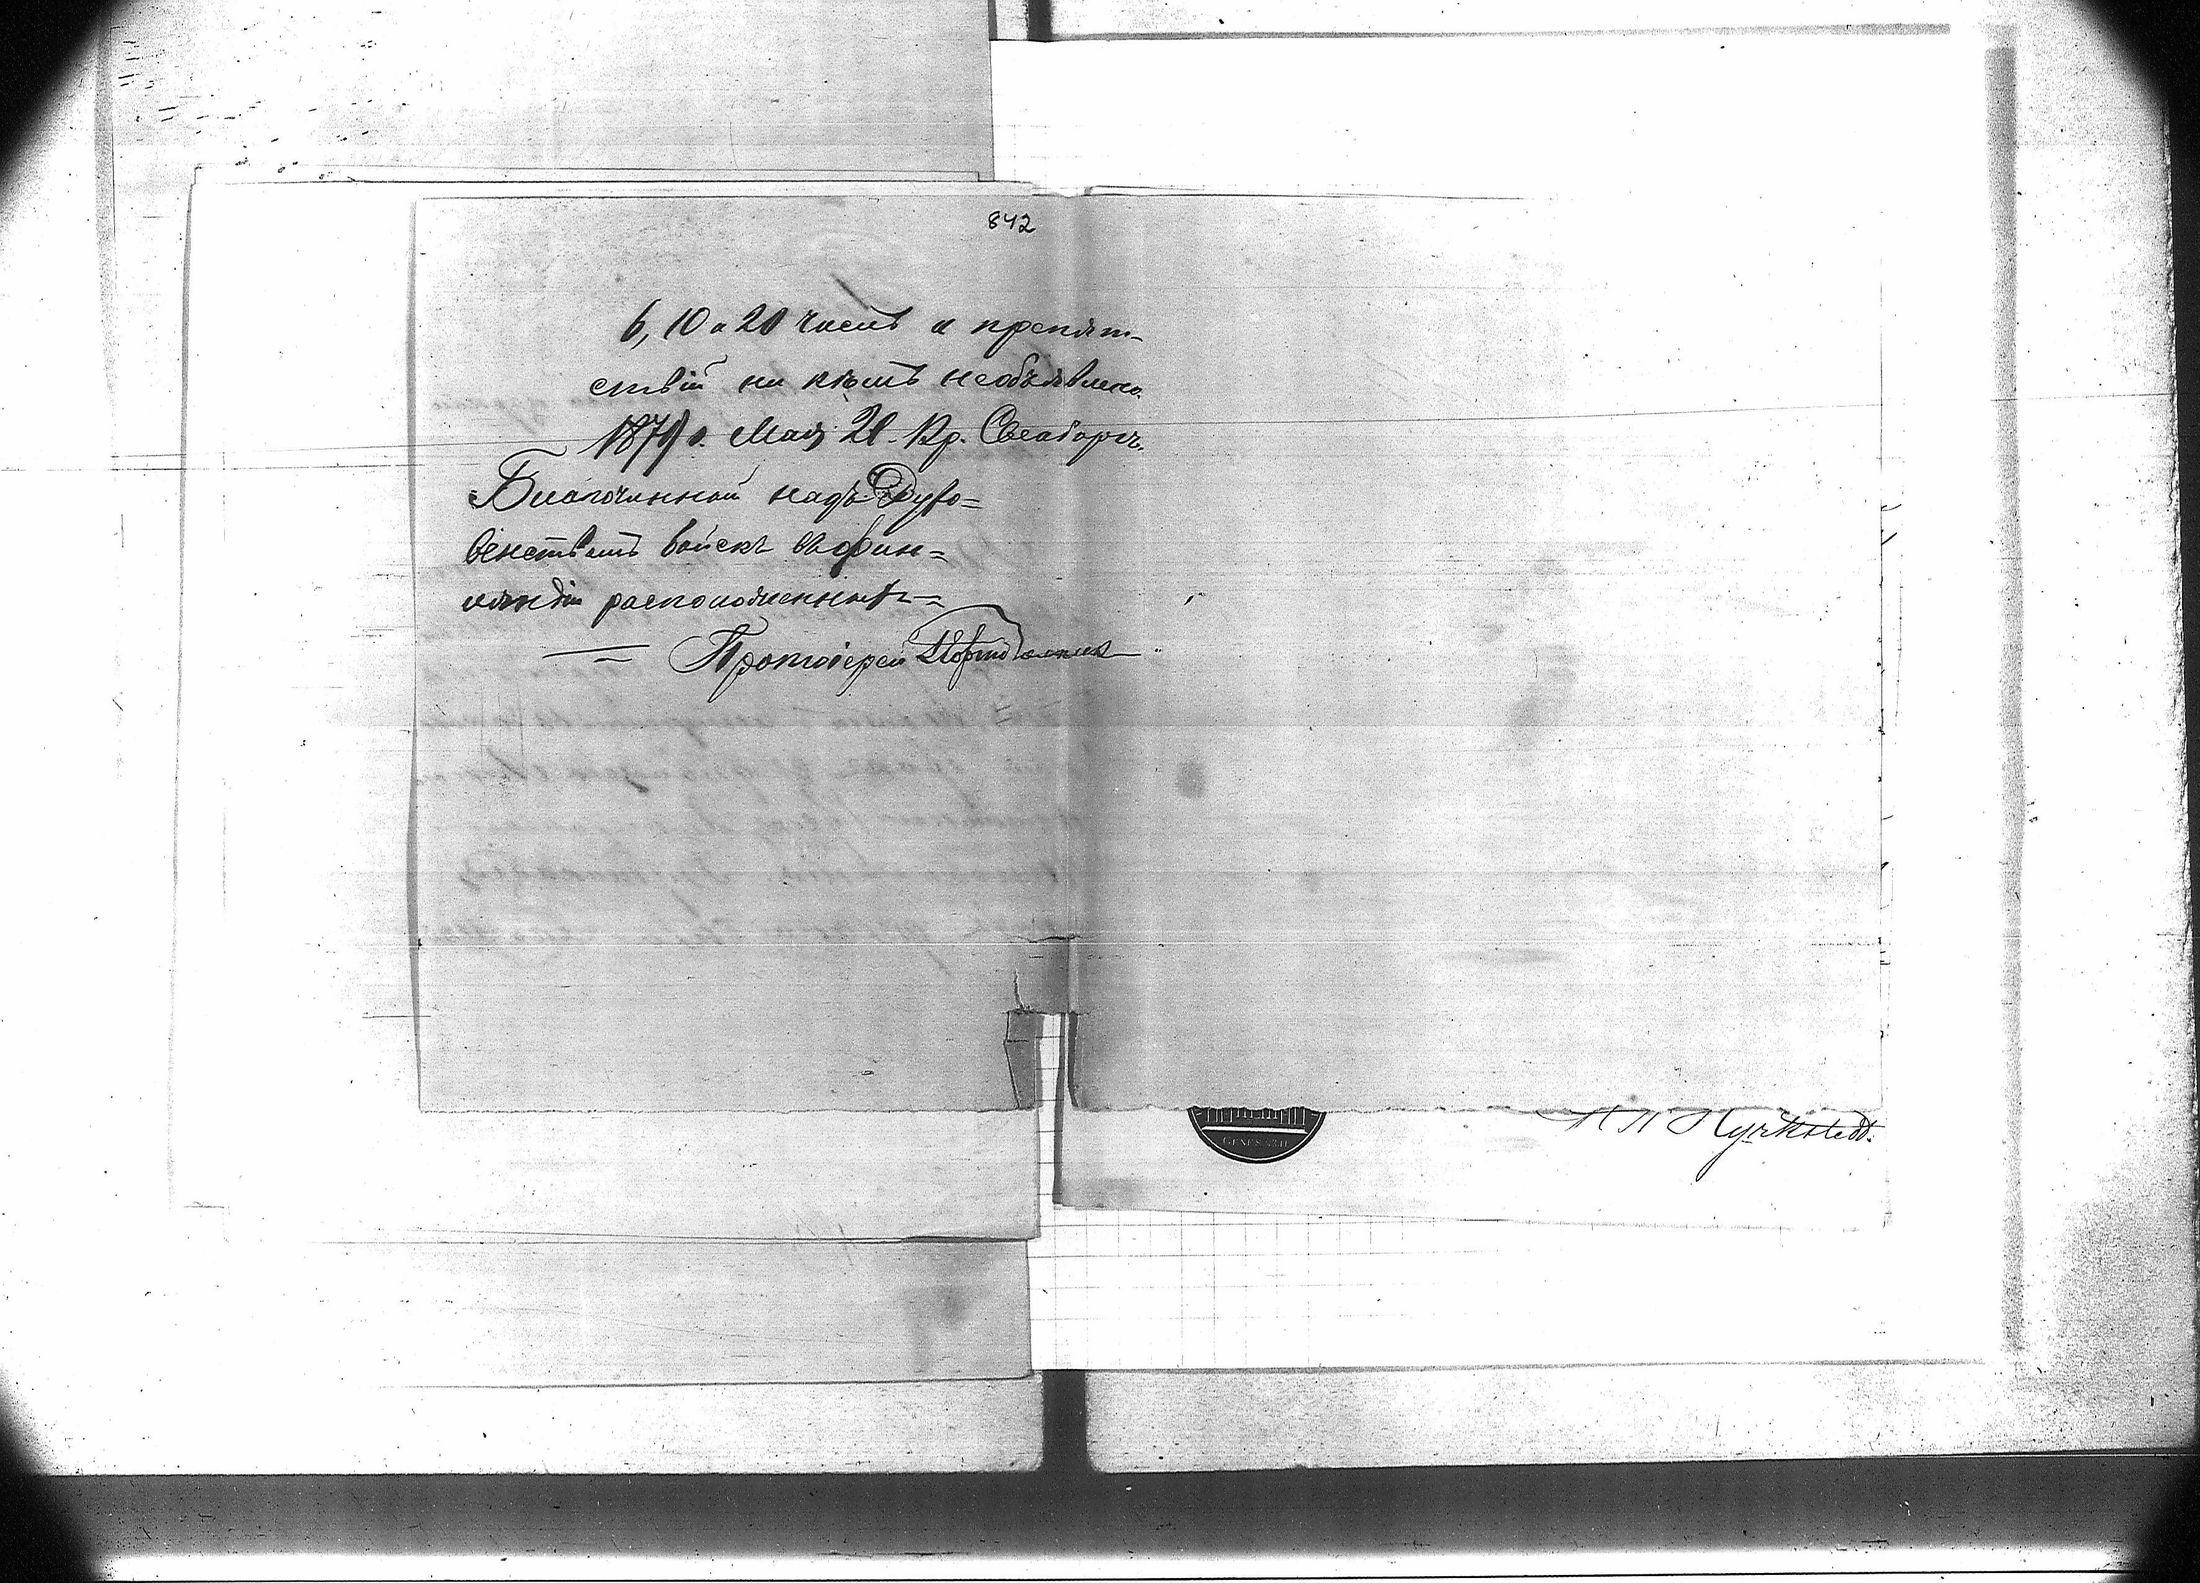 842
6, 10 и 20 числъ и препят-
ствій ни кѣмъ необъявлено.
1879 г. Мая 21. Кр. Свеаборгъ.
Благочинный надъ Духо=
венствомъ войскъ въ Фин=
ляндіи расположенныхъ=
Протоіерей
GENERAL